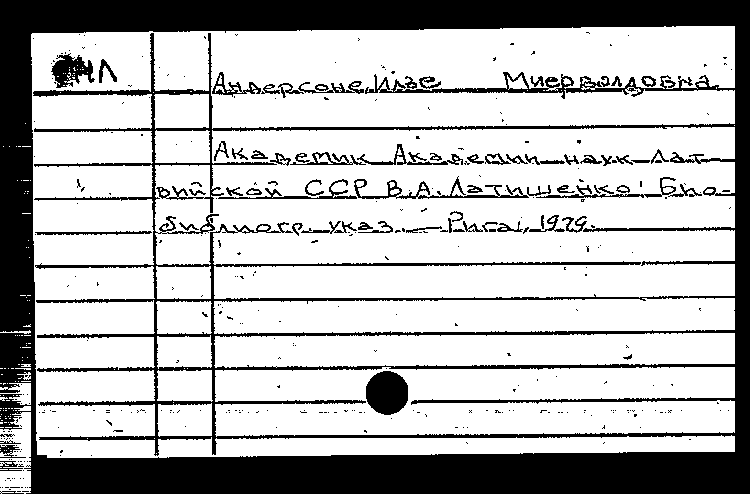 Андерсоне, Илзе Миервалдовна
Академик Академии наук Лат-
вийской ССР В.А. Латишенко: Био-
библиогр. указ. — Рига, 1979.